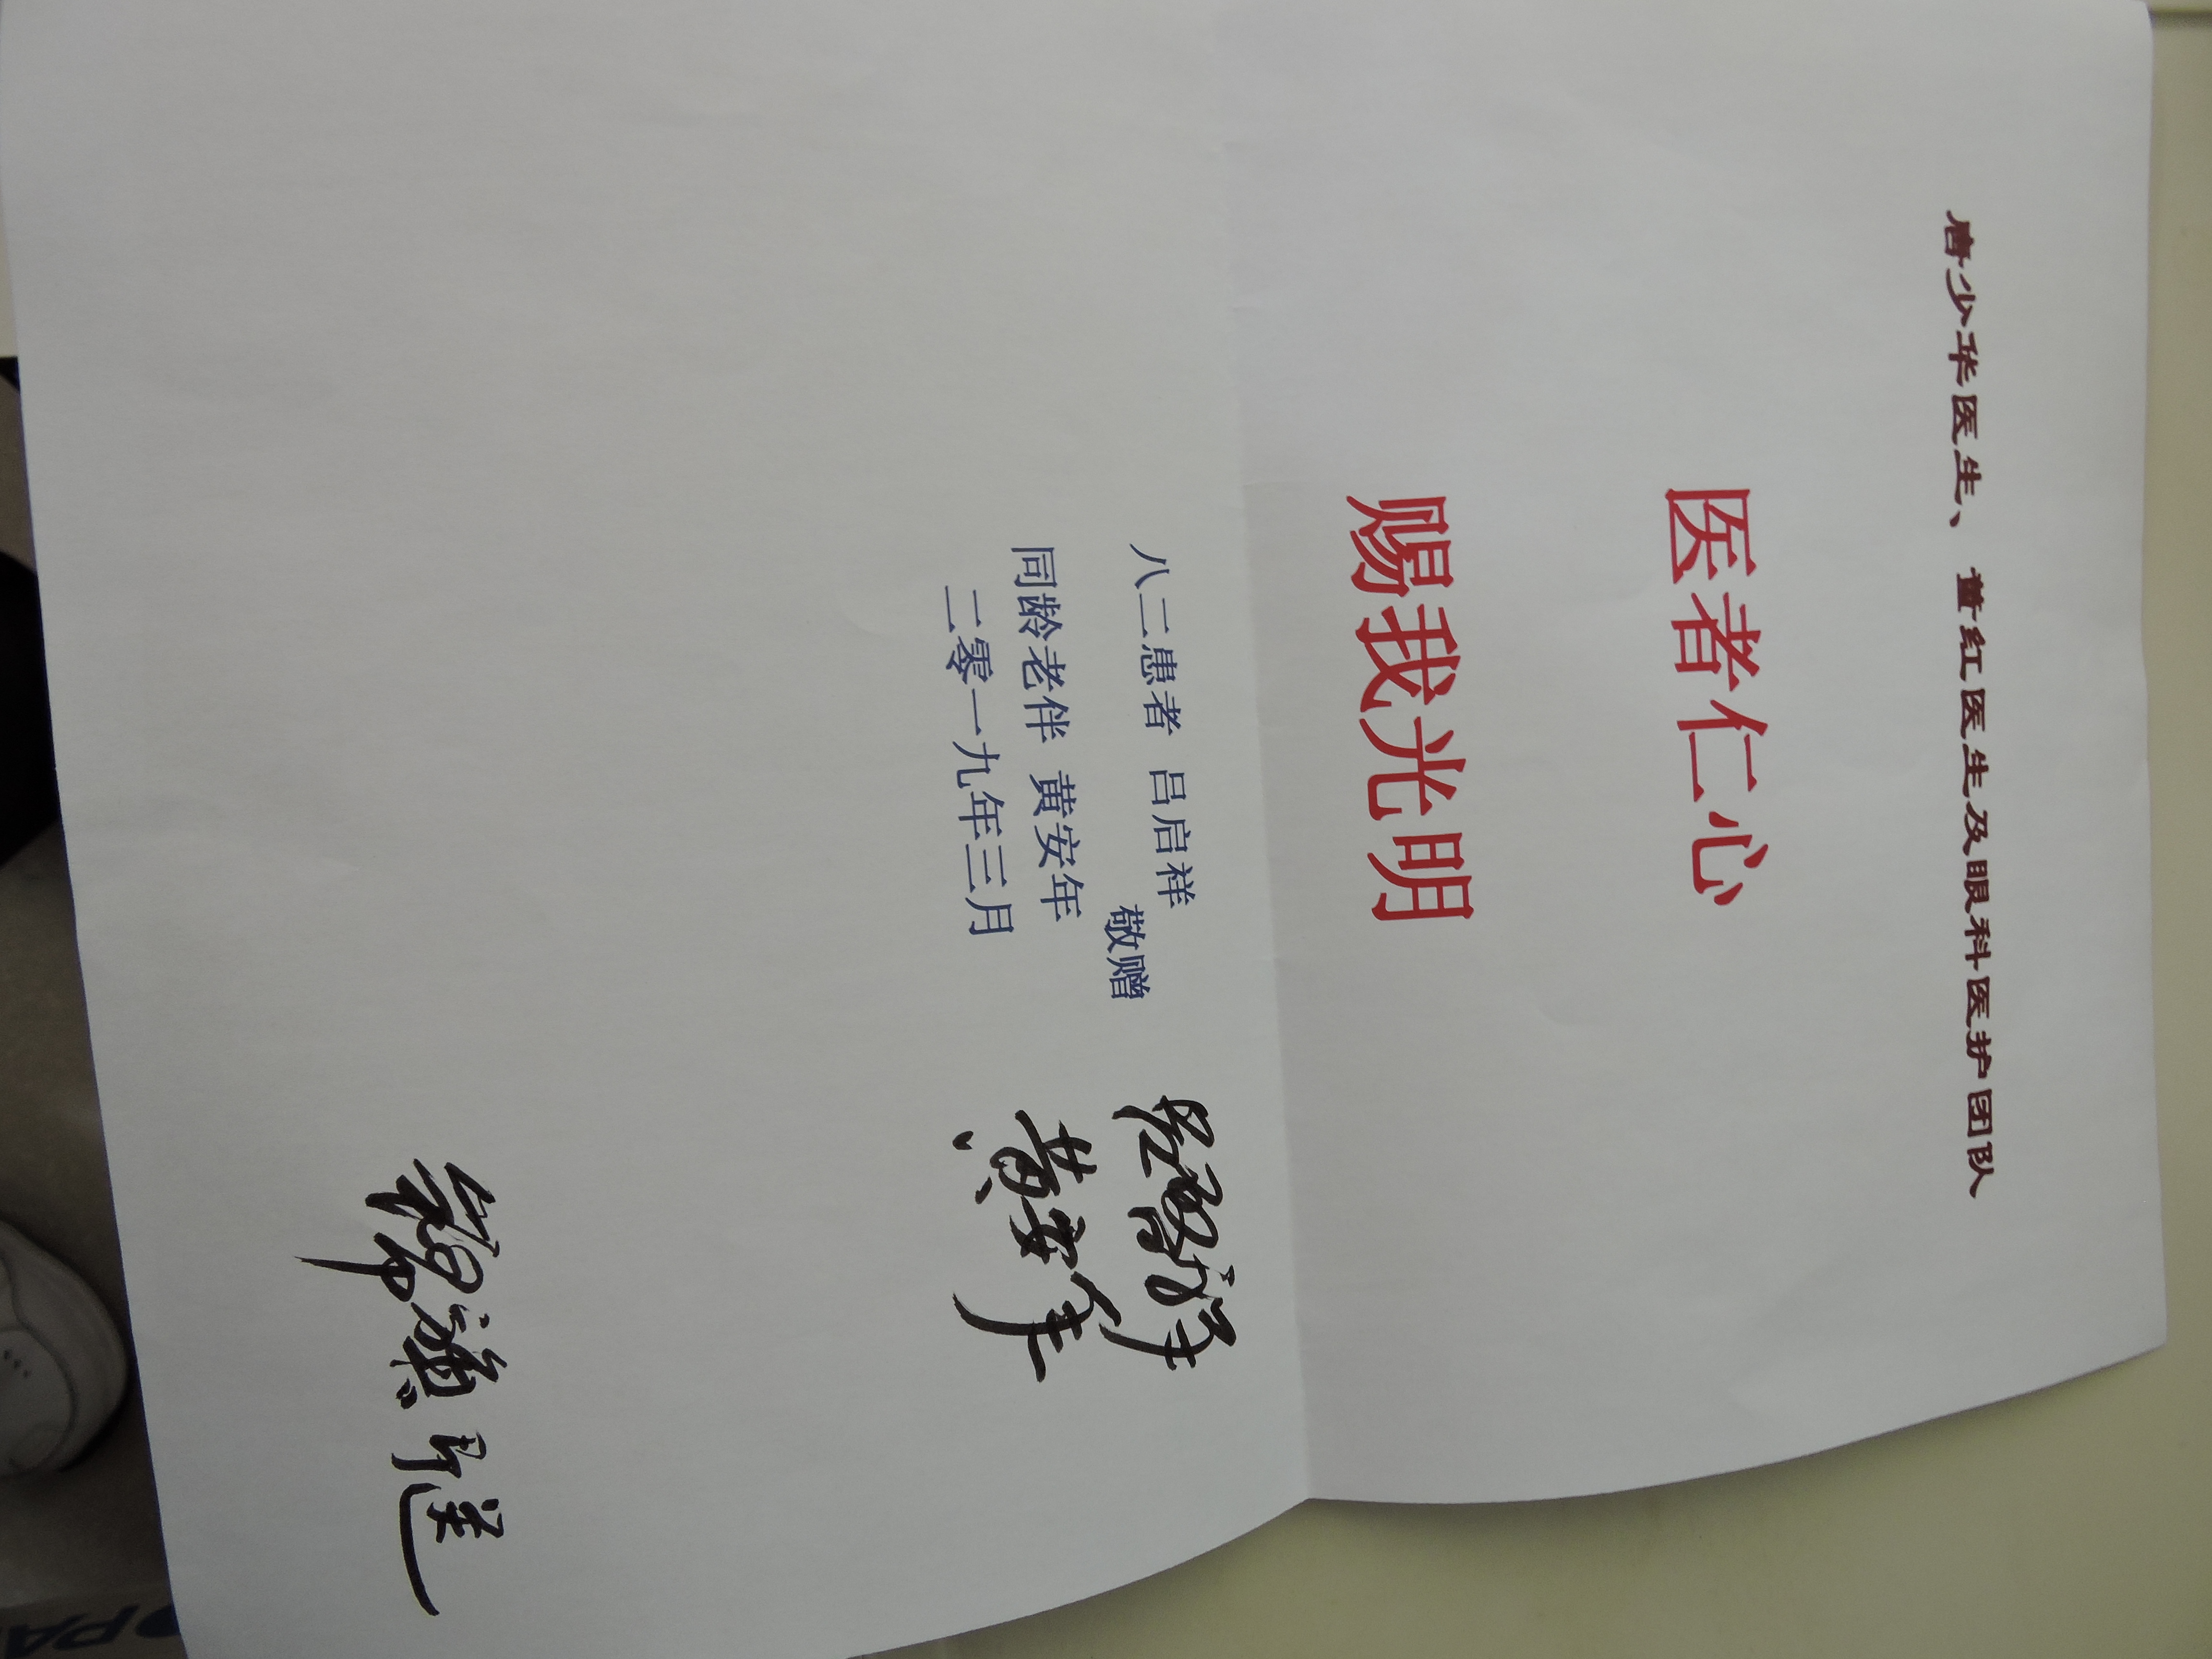 唐少华医生、董红医生及眼科医护团队
医者仁心
赐我光明
八二患者 吕启祥
敬赠
同龄老伴 黄安年
二零一九年三月
吕启祥
黄安年